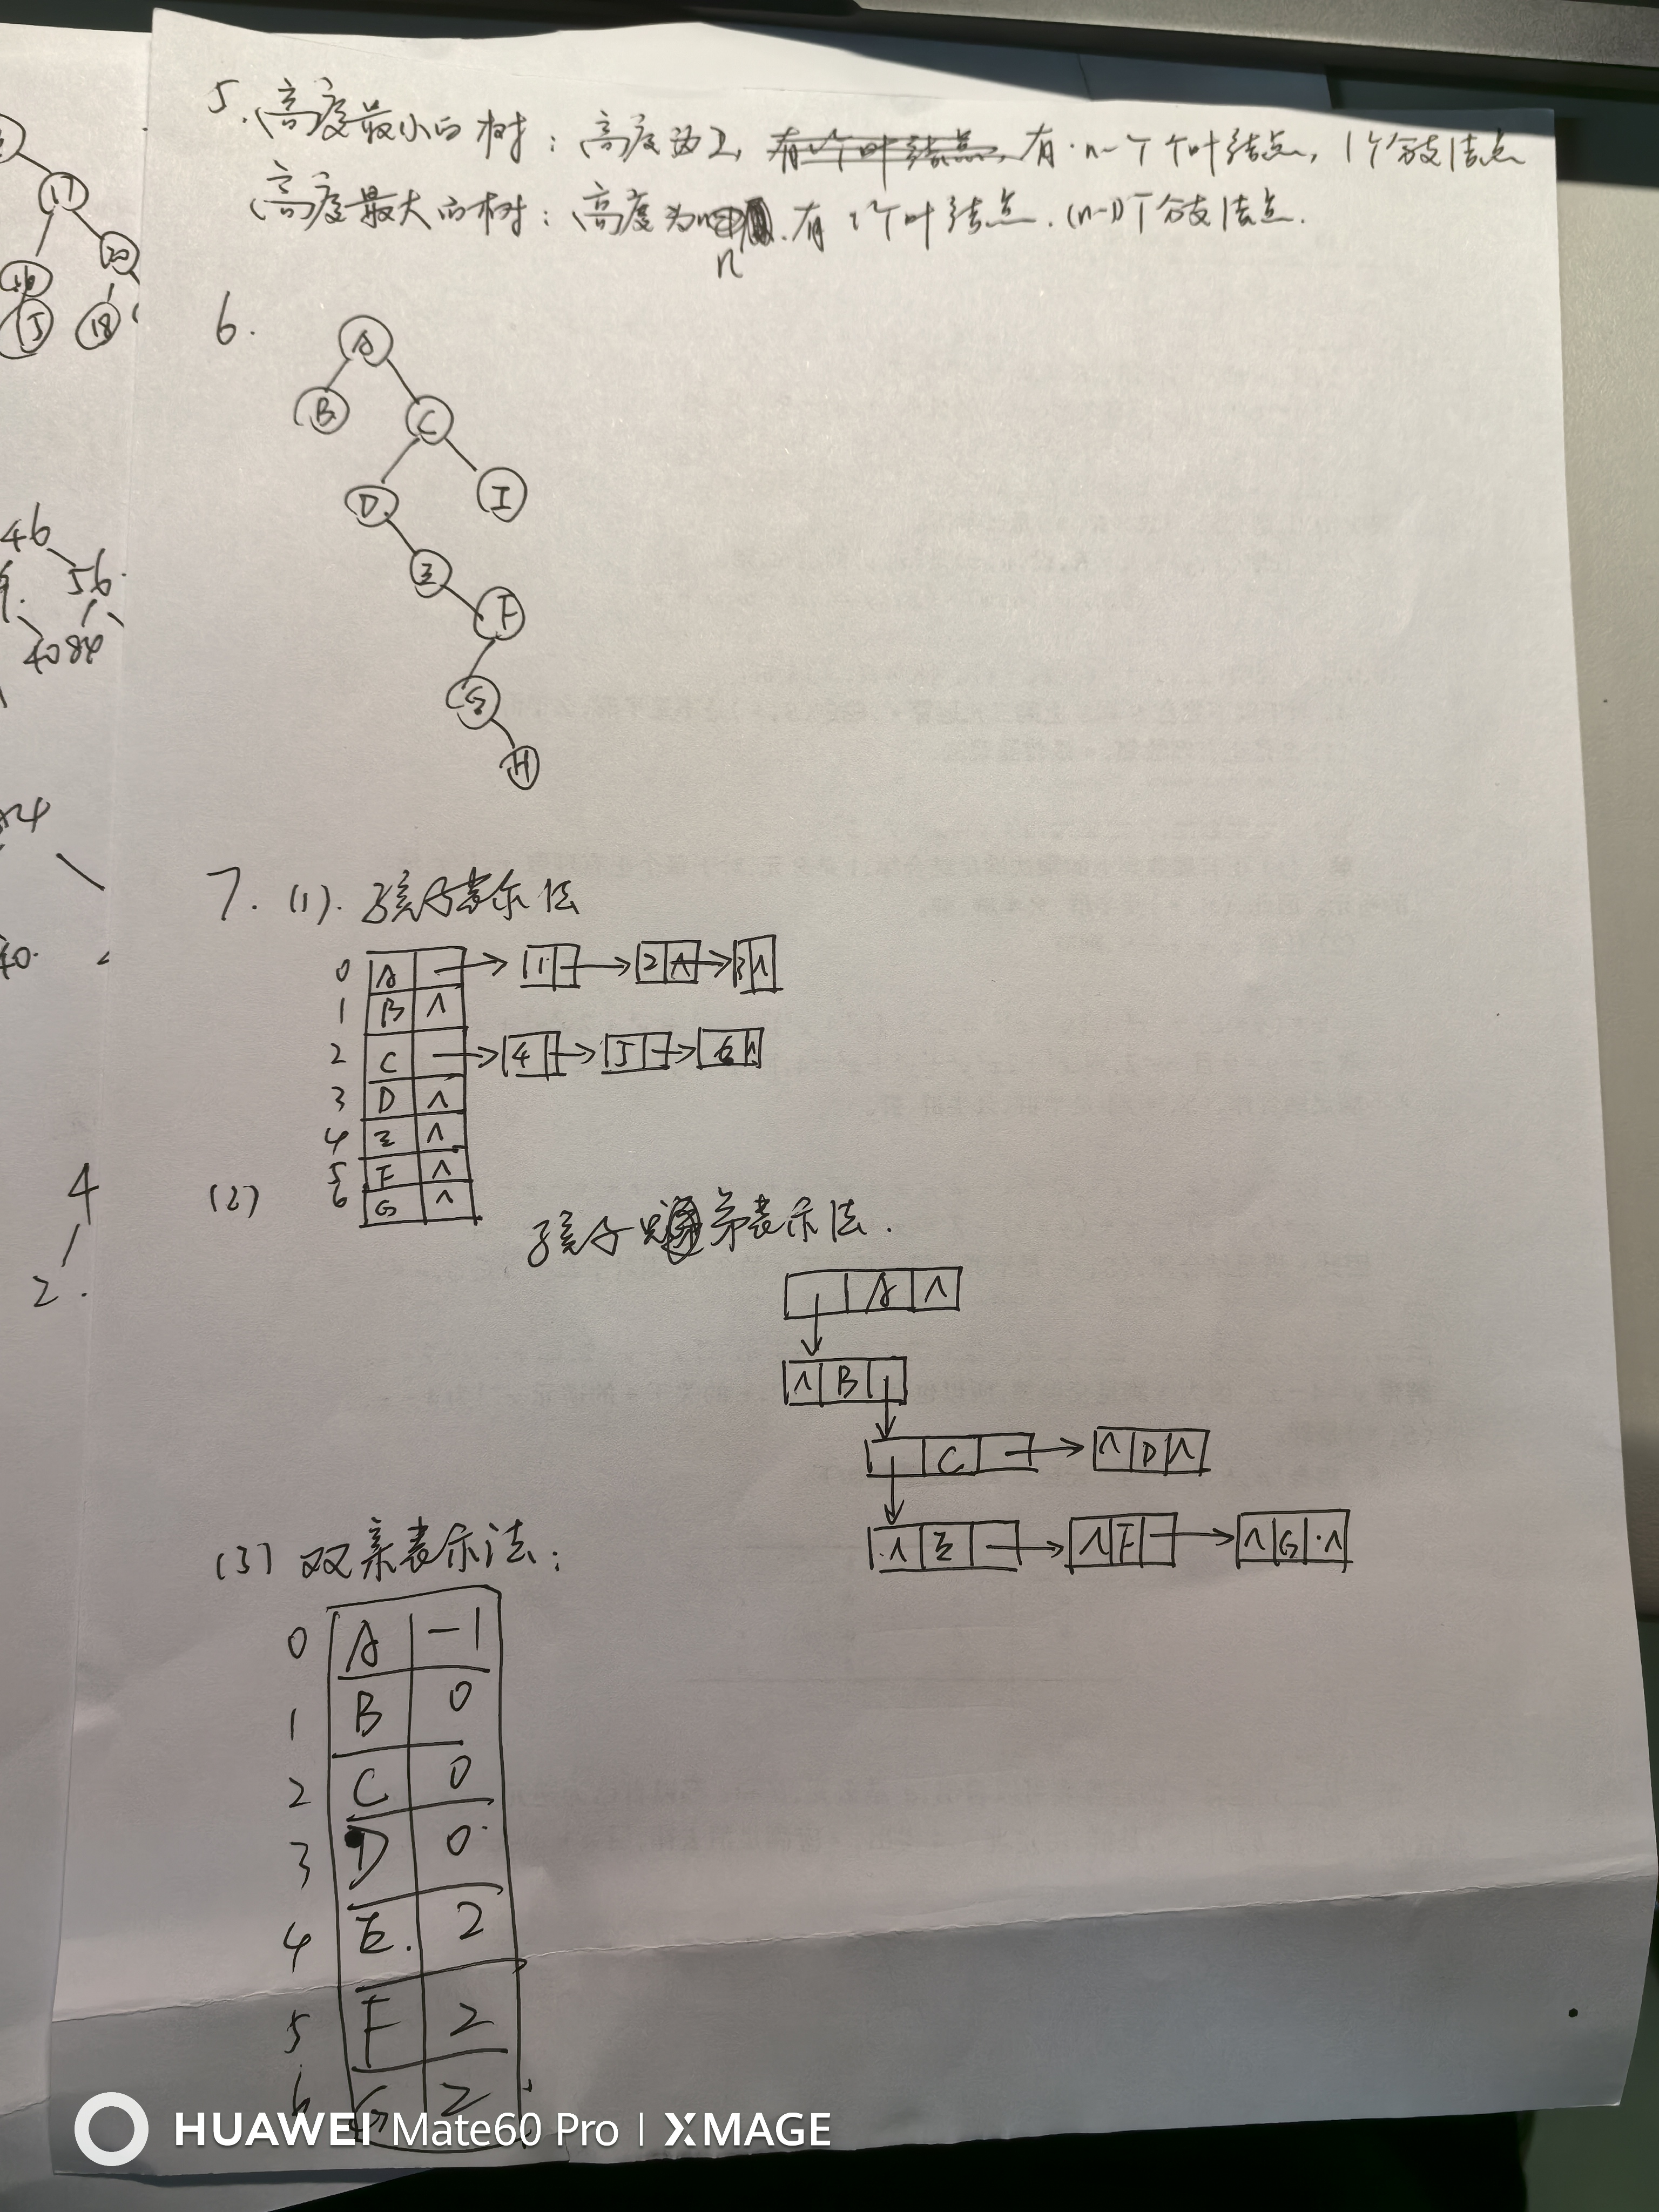 5. 高度最小的树：高度为2, 有1个叶结点, 有n-1个叶结点, 1个分支结点
高度最大的树：高度为n. 有1个叶结点. (n-1)个分支结点.
17
20
16
5
18
6.
A
B
C
D
I
E
F
G
H
46
56.
40 84
24
40.
4
2.
7. (1). 孩子表示法
0 A → 1 → 2 ∧ → 3 ∧
1 B ∧
2 C → 4 → 5 → 6 ∧
3 D ∧
4 E ∧
5 F ∧
6 G ∧
(2) 孩子兄弟表示法.
A ∧
∧ B
C → ∧ D ∧
∧ E → ∧ F → ∧ G ∧
(3) 双亲表示法:
0 A -1
1 B 0
2 C 0
3 D 0
4 E. 2
5 F 2
6 G 2
HUAWEI Mate60 Pro | XMAGE